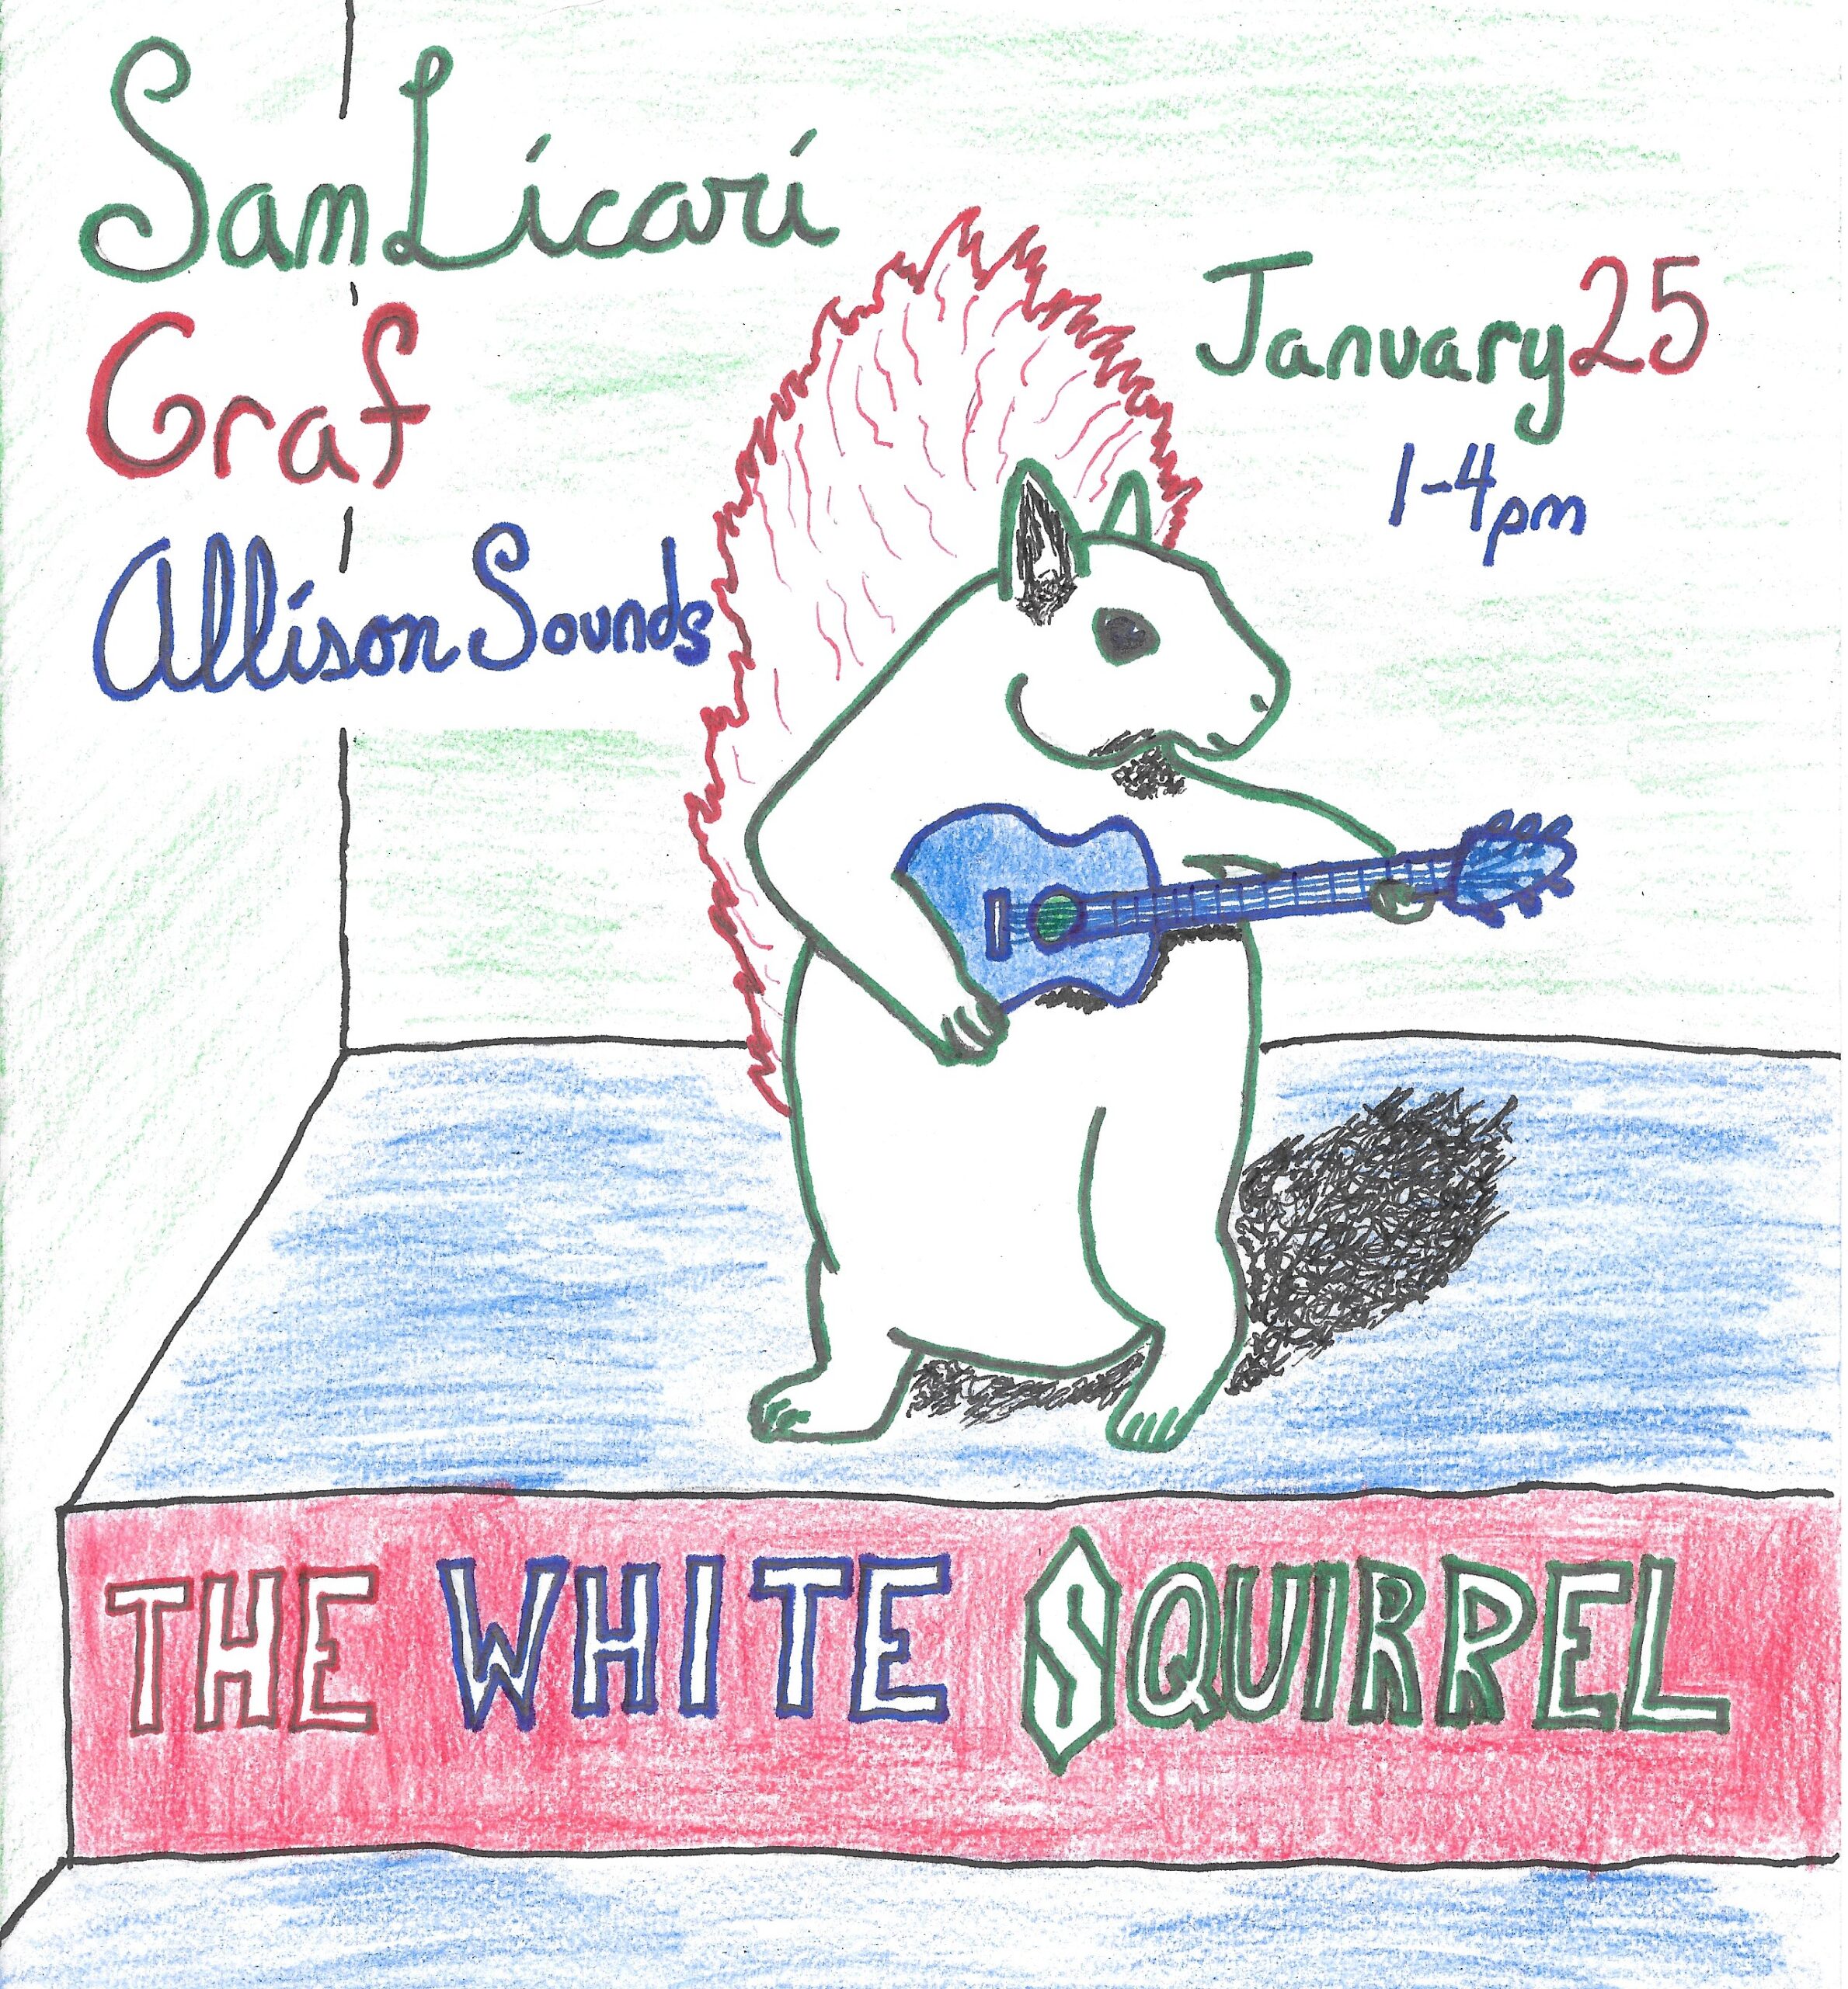 Sam Licari
Graf
Allison Sounds
January 25
1-4pm
THE WHITE SQUIRREL